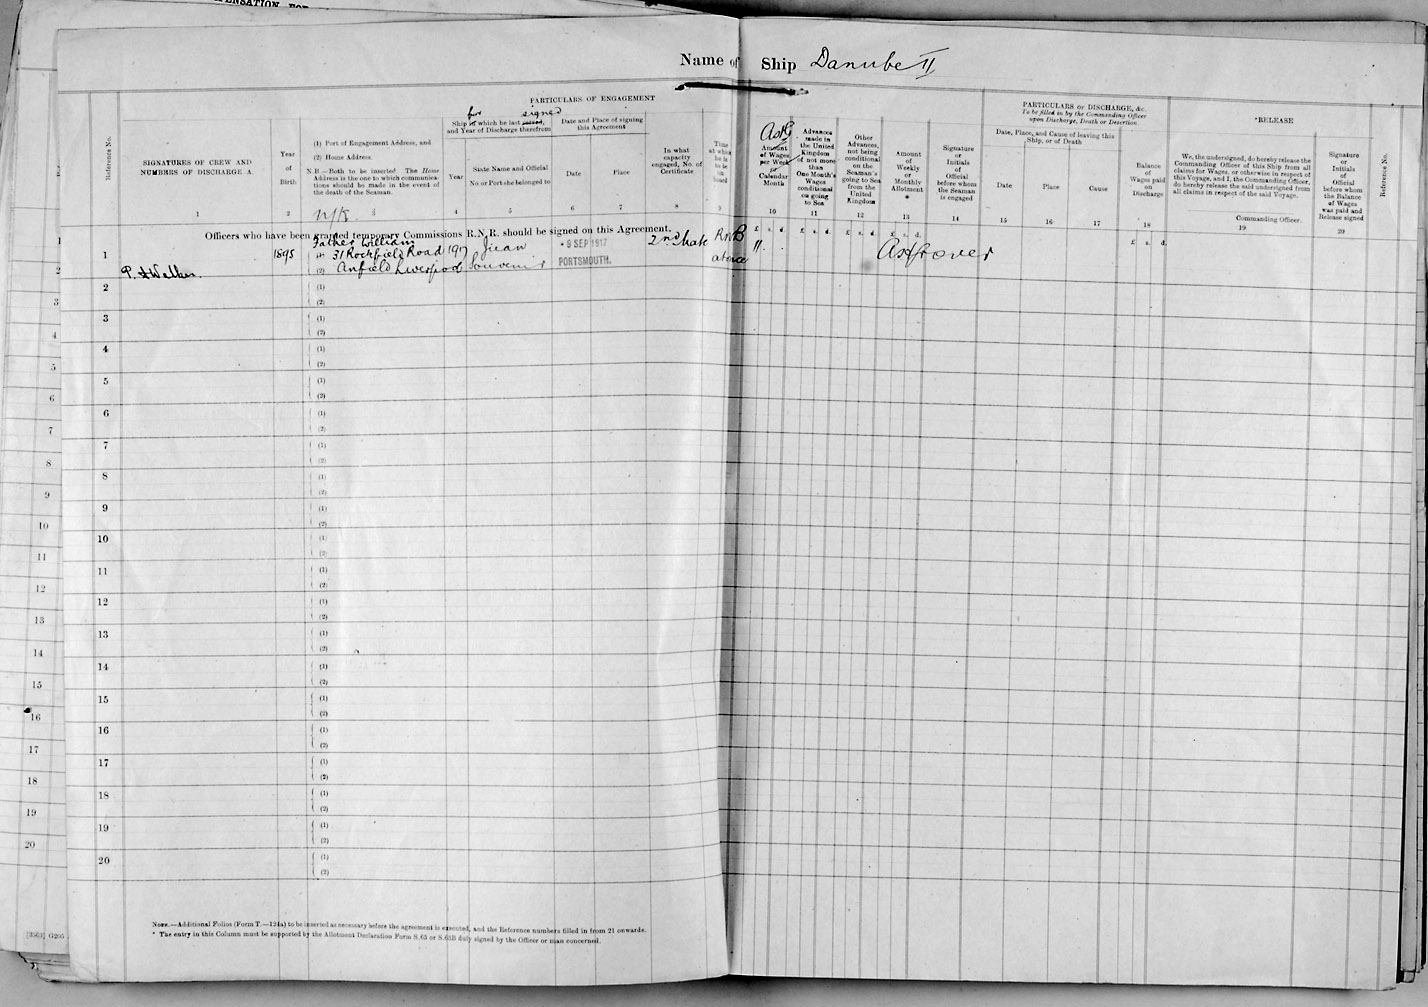 PENSATION FOR
Name of Ship Danube II
PARTICULARS OF ENGAGEMENT
PARTICULARS OF DISCHARGE, &c.
To be filled in by the Commanding Officer
upon Discharge, Death or Desertion
*RELEASE
Reference No.
SIGNATURES OF CREW AND
NUMBERS OF DISCHARGE A.
Year
of
Birth
(1) Port of Engagement Address, and
(2) Home Address.
N.B.—Both to be inserted. The Home
Address is the one to which communica-
tions should be made in the event of
the death of the Seaman.
N/K
for signed
Ship in which he last served,
and Year of Discharge therefrom
Year
State Name and Official
No. or Port she belonged to
Date and Place of signing
this Agreement
Date
Place
In what
capacity
engaged, No. of
Certificate
Time
at which
he is
to be
on
board
Amount
of Wages
per Week
or
Calendar
Month
Advances
made in
the United
Kingdom
of not more
than
One Month's
Wages
conditional
on going
to Sea
Other
Advances,
not being
conditional
on the
Seaman's
going to Sea
from the
United
Kingdom
Amount
of
Weekly
or
Monthly
Allotment
*
Signature
or
Initials
of
Official
before whom
the Seaman
is engaged
Date, Place, and Cause of leaving this
Ship, or of Death
Date
Place
Cause
Balance
of
Wages paid
on
Discharge
We, the undersigned, do hereby release the
Commanding Officer of this Ship from all
claims for Wages, or otherwise in respect of
this Voyage, and I, the Commanding Officer,
do hereby release the said undersigned from
all claims in respect of the said Voyage.
Commanding Officer.
Signature
or
Initials
of
Official
before whom
the Balance
of Wages
was paid and
Release signed
Reference No.
1 2 3 4 5 6 7 8 9 10 11 12 13 14 15 16 17 18 19 20
£ s. d. £ s. d. £ s. d. £ s. d. £ s. d.
Officers who have been granted temporary Commissions R.N.R. should be signed on this Agreement.
Father William
1 1895 31 Rochfield Road 1917 9 SEP 1917 2nd Mate
(2) Anfield Liverpool Souvenir PORTSMOUTH. at once
Walker
2 (1)
(2)
3 (1)
(2)
4 (1)
(2)
5 (1)
(2)
6 (1)
(2)
7 (1)
(2)
8 (1)
(2)
9 (1)
(2)
10 (1)
(2)
11 (1)
(2)
12 (1)
(2)
13 (1)
(2)
14 (1)
(2)
15 (1)
(2)
16 (1)
(2)
17 (1)
(2)
18 (1)
(2)
19 (1)
(2)
20 (1)
(2)
NOTE.—Additional Folios (Form T.—124a) to be inserted as necessary before the agreement is executed, and the Reference numbers filled in from 21 onwards.
* The entry in this Column must be supported by the Allotment Declaration Form S.63 or S.63B duly signed by the Officer or man concerned.
1
2
3
4
5
6
7
8
9
10
11
12
13
14
15
16
17
18
19
20
[3563] G205